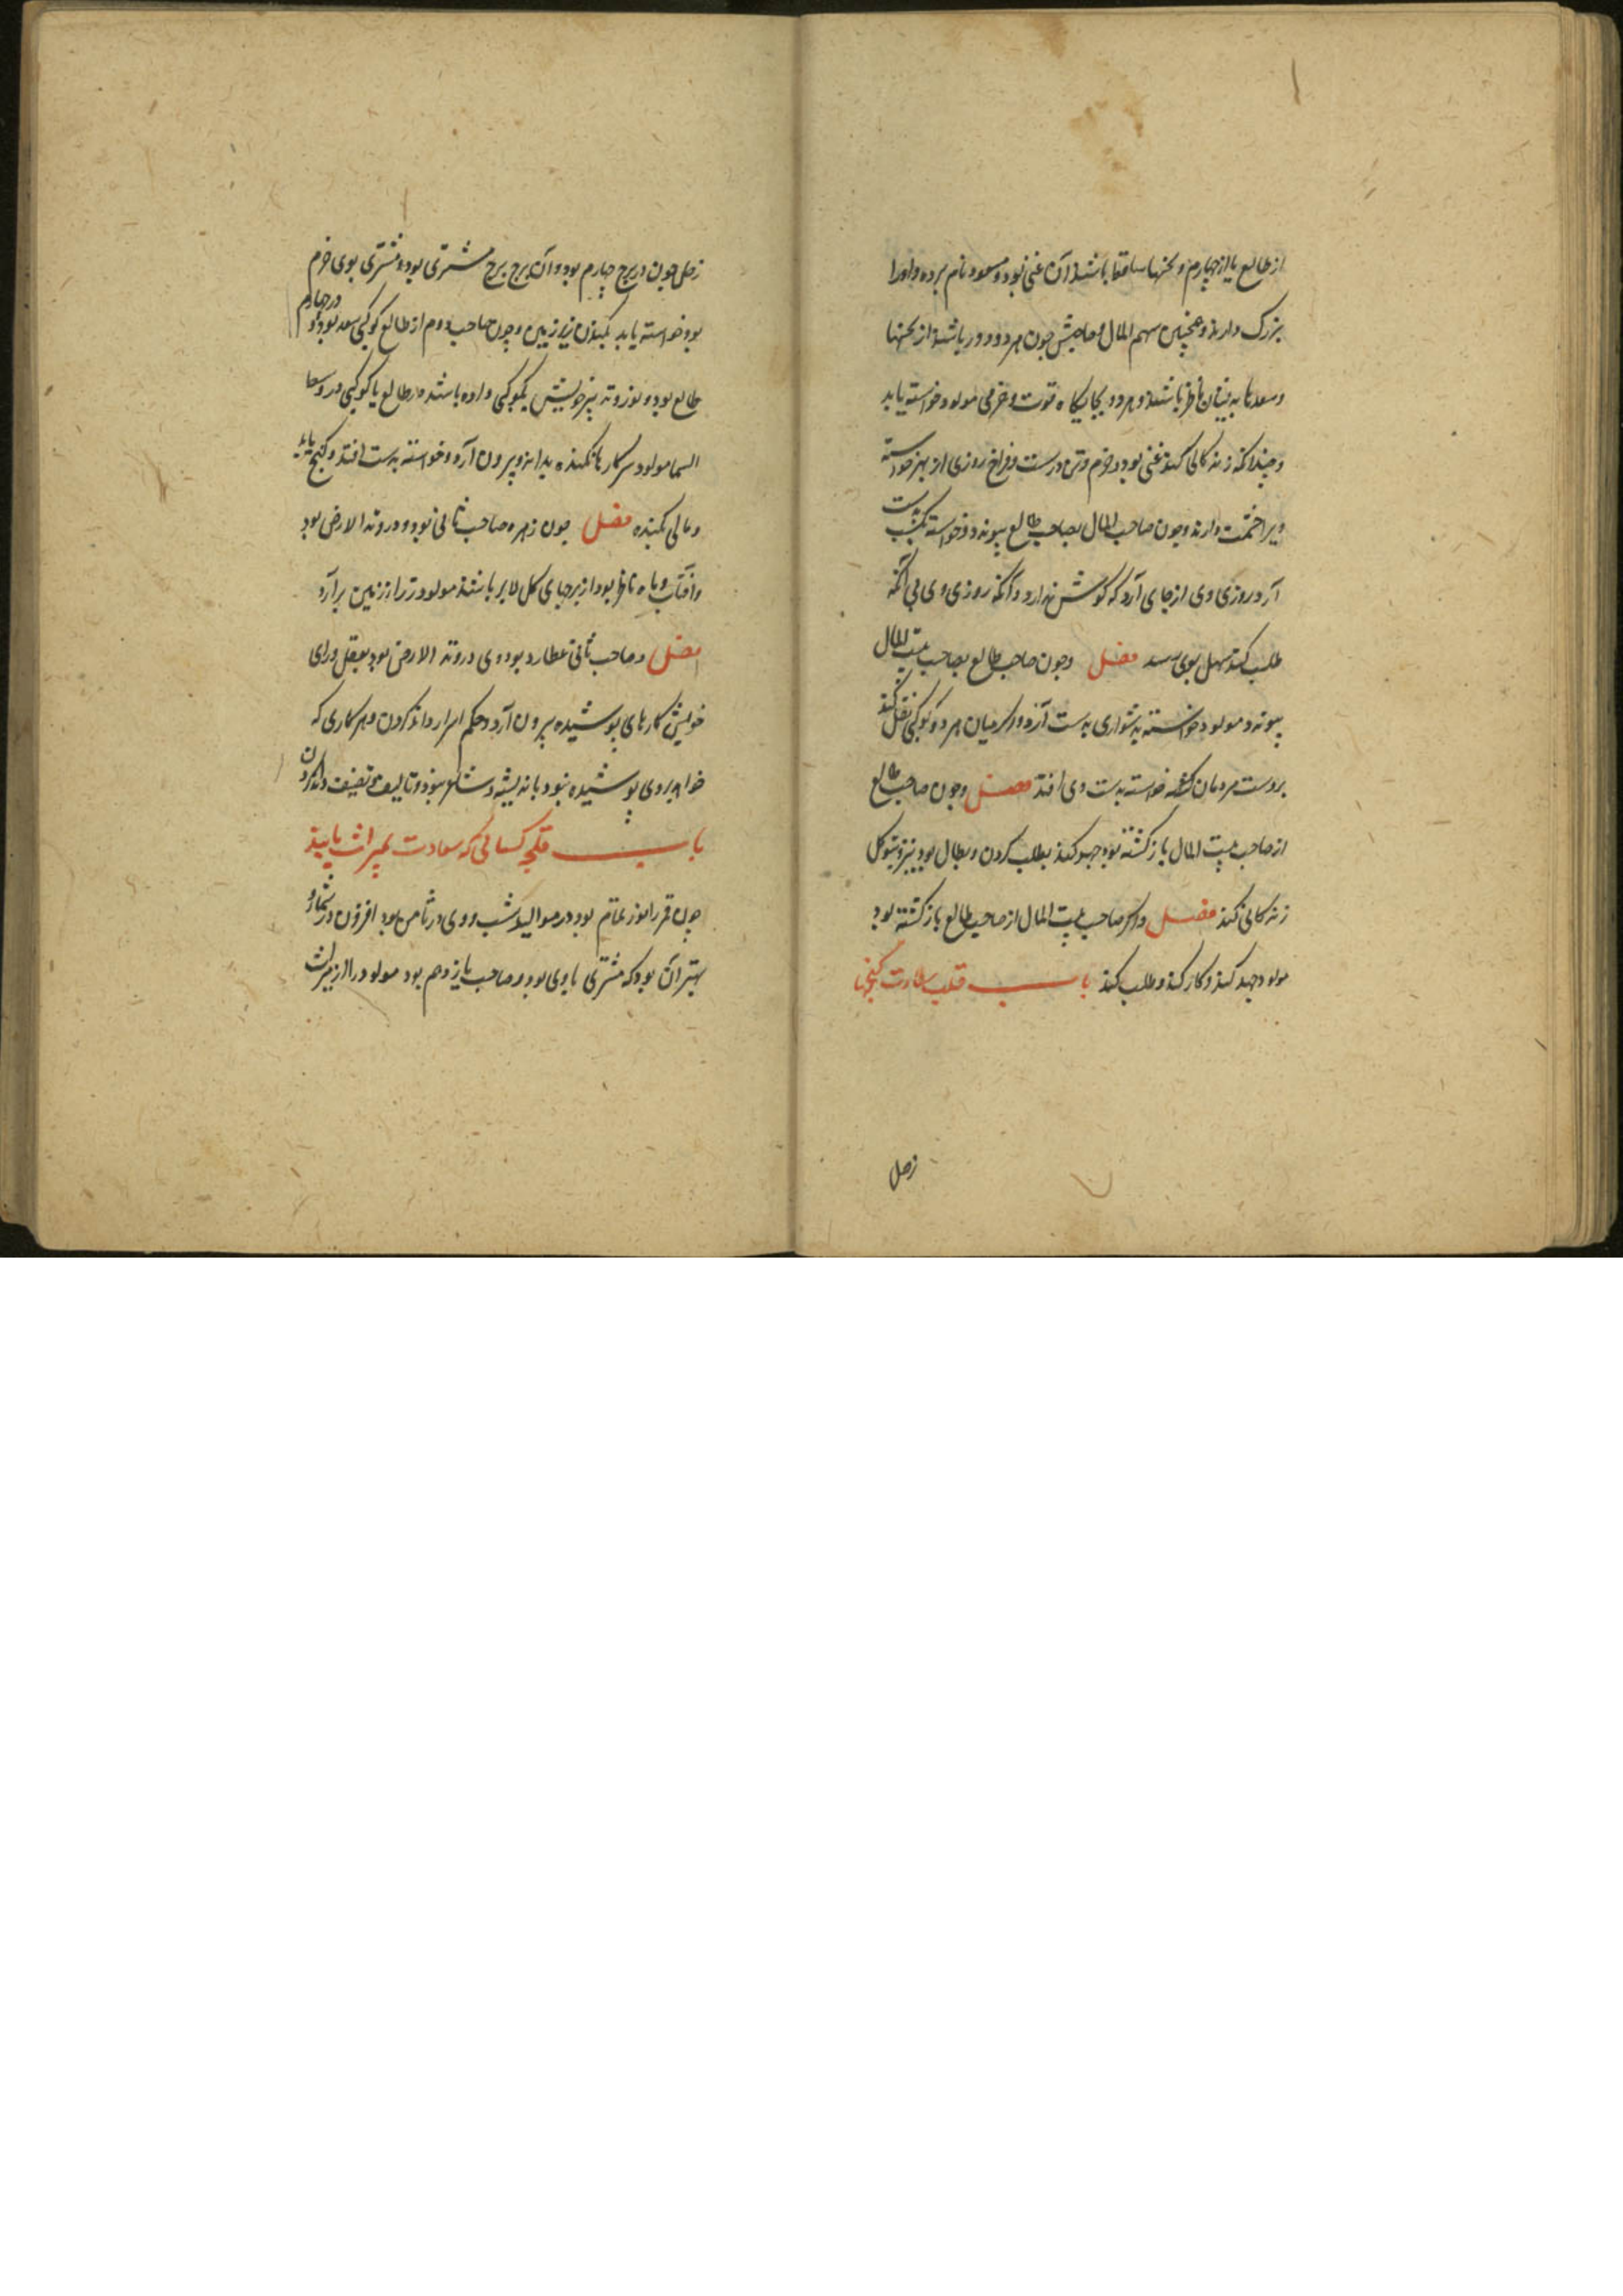 از طالع یا از چهارم و نحسها ساقط باشند آن غنی بود و مسعود نام برده و او را
بزرک دارند و همچنین سهم المال و صاحبش چون هر دو دور باشند از نحسها
و سعدها بدیشان ناظر باشند و هر دو بجایکاه قوت و خرمی مولود خواسته یابد
و چندانکه زندکانی کند غنی بود و خرم و تن درست و فراخ روزی از بهر خواسته
ویرا حشمت دارند و چون صاحب المال بصاحب طالع پیوندد خواسته بکسب بدست
آرد و روزی وی از جای آرد که کوشش ندارد و آنکه روزی وی بی آنکه
طلب کند سهل بوی رسد فصل و چون صاحب طالع بصاحب بیت المال
پیوندد مولود خواسته بدشواری بدست آرد و اکر میان هر دو کوکبی نقل کند
بر دست مردمان خواسته بدست وی افتد فصل و چون صاحب طالع
از صاحب بیت المال بازکشته بود جهد نکند بطلب کردن و بطال بود و بتوکل
زندکانی کند فصل و اکر صاحب بیت المال از صاحب طالع بازکشته بود
مولود جهد کند و کار کند و طلب کند باب سعادت کنجها
زحل
زحل چون در برج چهارم بود و آن برج برج مشتری بود و مشتری بوی خرم
بود خواسته یابد زیر زمین و چون صاحب دوم از طالع کوکبی سعد بود و در چهارم
طالع بود و نور و تدبیر خویش بکوکبی داده باشد در طالع یا کوکبی در وسط
السما مولود سر کارها بداند و بیرون آرد و خواسته بدست افتد و کنج یابد
و مالی فصل چون زهره صاحب ثانی بود و در وتد الارض بود
و آفتاب و ماه ناظر بود از برجهای باشند مولود زر از زمین برآرد
فصل و صاحب ثانی عطارد بود و وی در وتد الارض بود بعقل و رای
خویش کارهای پوشیده بیرون آرد و حکم اسرار داند کردن و هر کاری که
خواهد بر وی پوشیده نبود باندیشه و تالیف و تصنیف داند کردن
باب کسانی که سعادت بمیراث یابند
چون قمر را نور تمام بود در موالید شب و وی در ثامن بود افزون در شمار و
بهتر آن بود که مشتری با وی بود و صاحب یازدهم بود مولود را از میراث